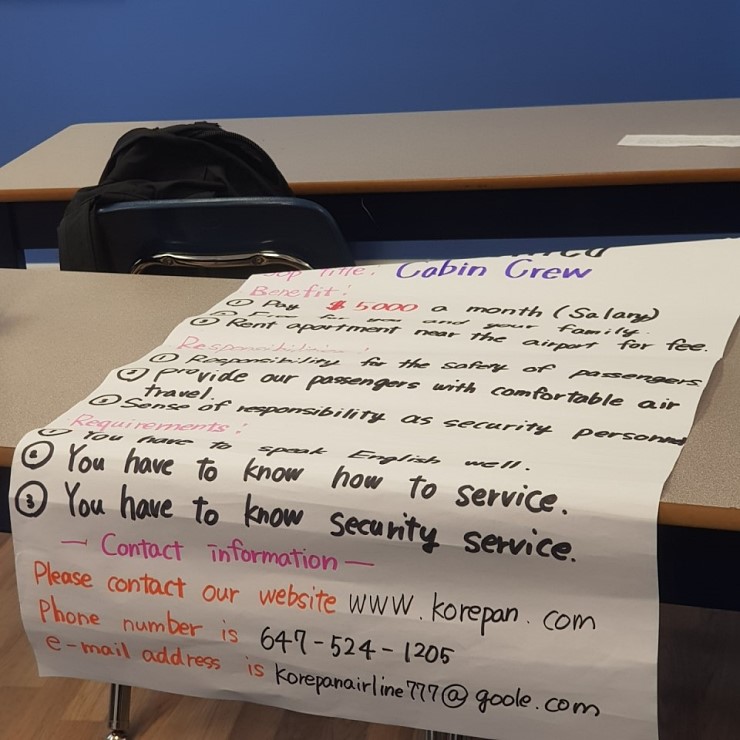 Title: Cabin Crew
Benefit:
① Pay $5000 a month (Salary)
for you and your family.
Rent apartment near the airport for fee.
Responsibilities:
① Responsibility for the safety of passengers
② provide our passengers with comfortable air
travel.
③ Sense of responsibility as security personnel
Requirements:
① You have to speak English well.
② You have to know how to service.
③ You have to know security service.
— Contact information —
Please contact our website www.korepan.com
Phone number is 647-524-1205
e-mail address is korepanairline777@goole.com